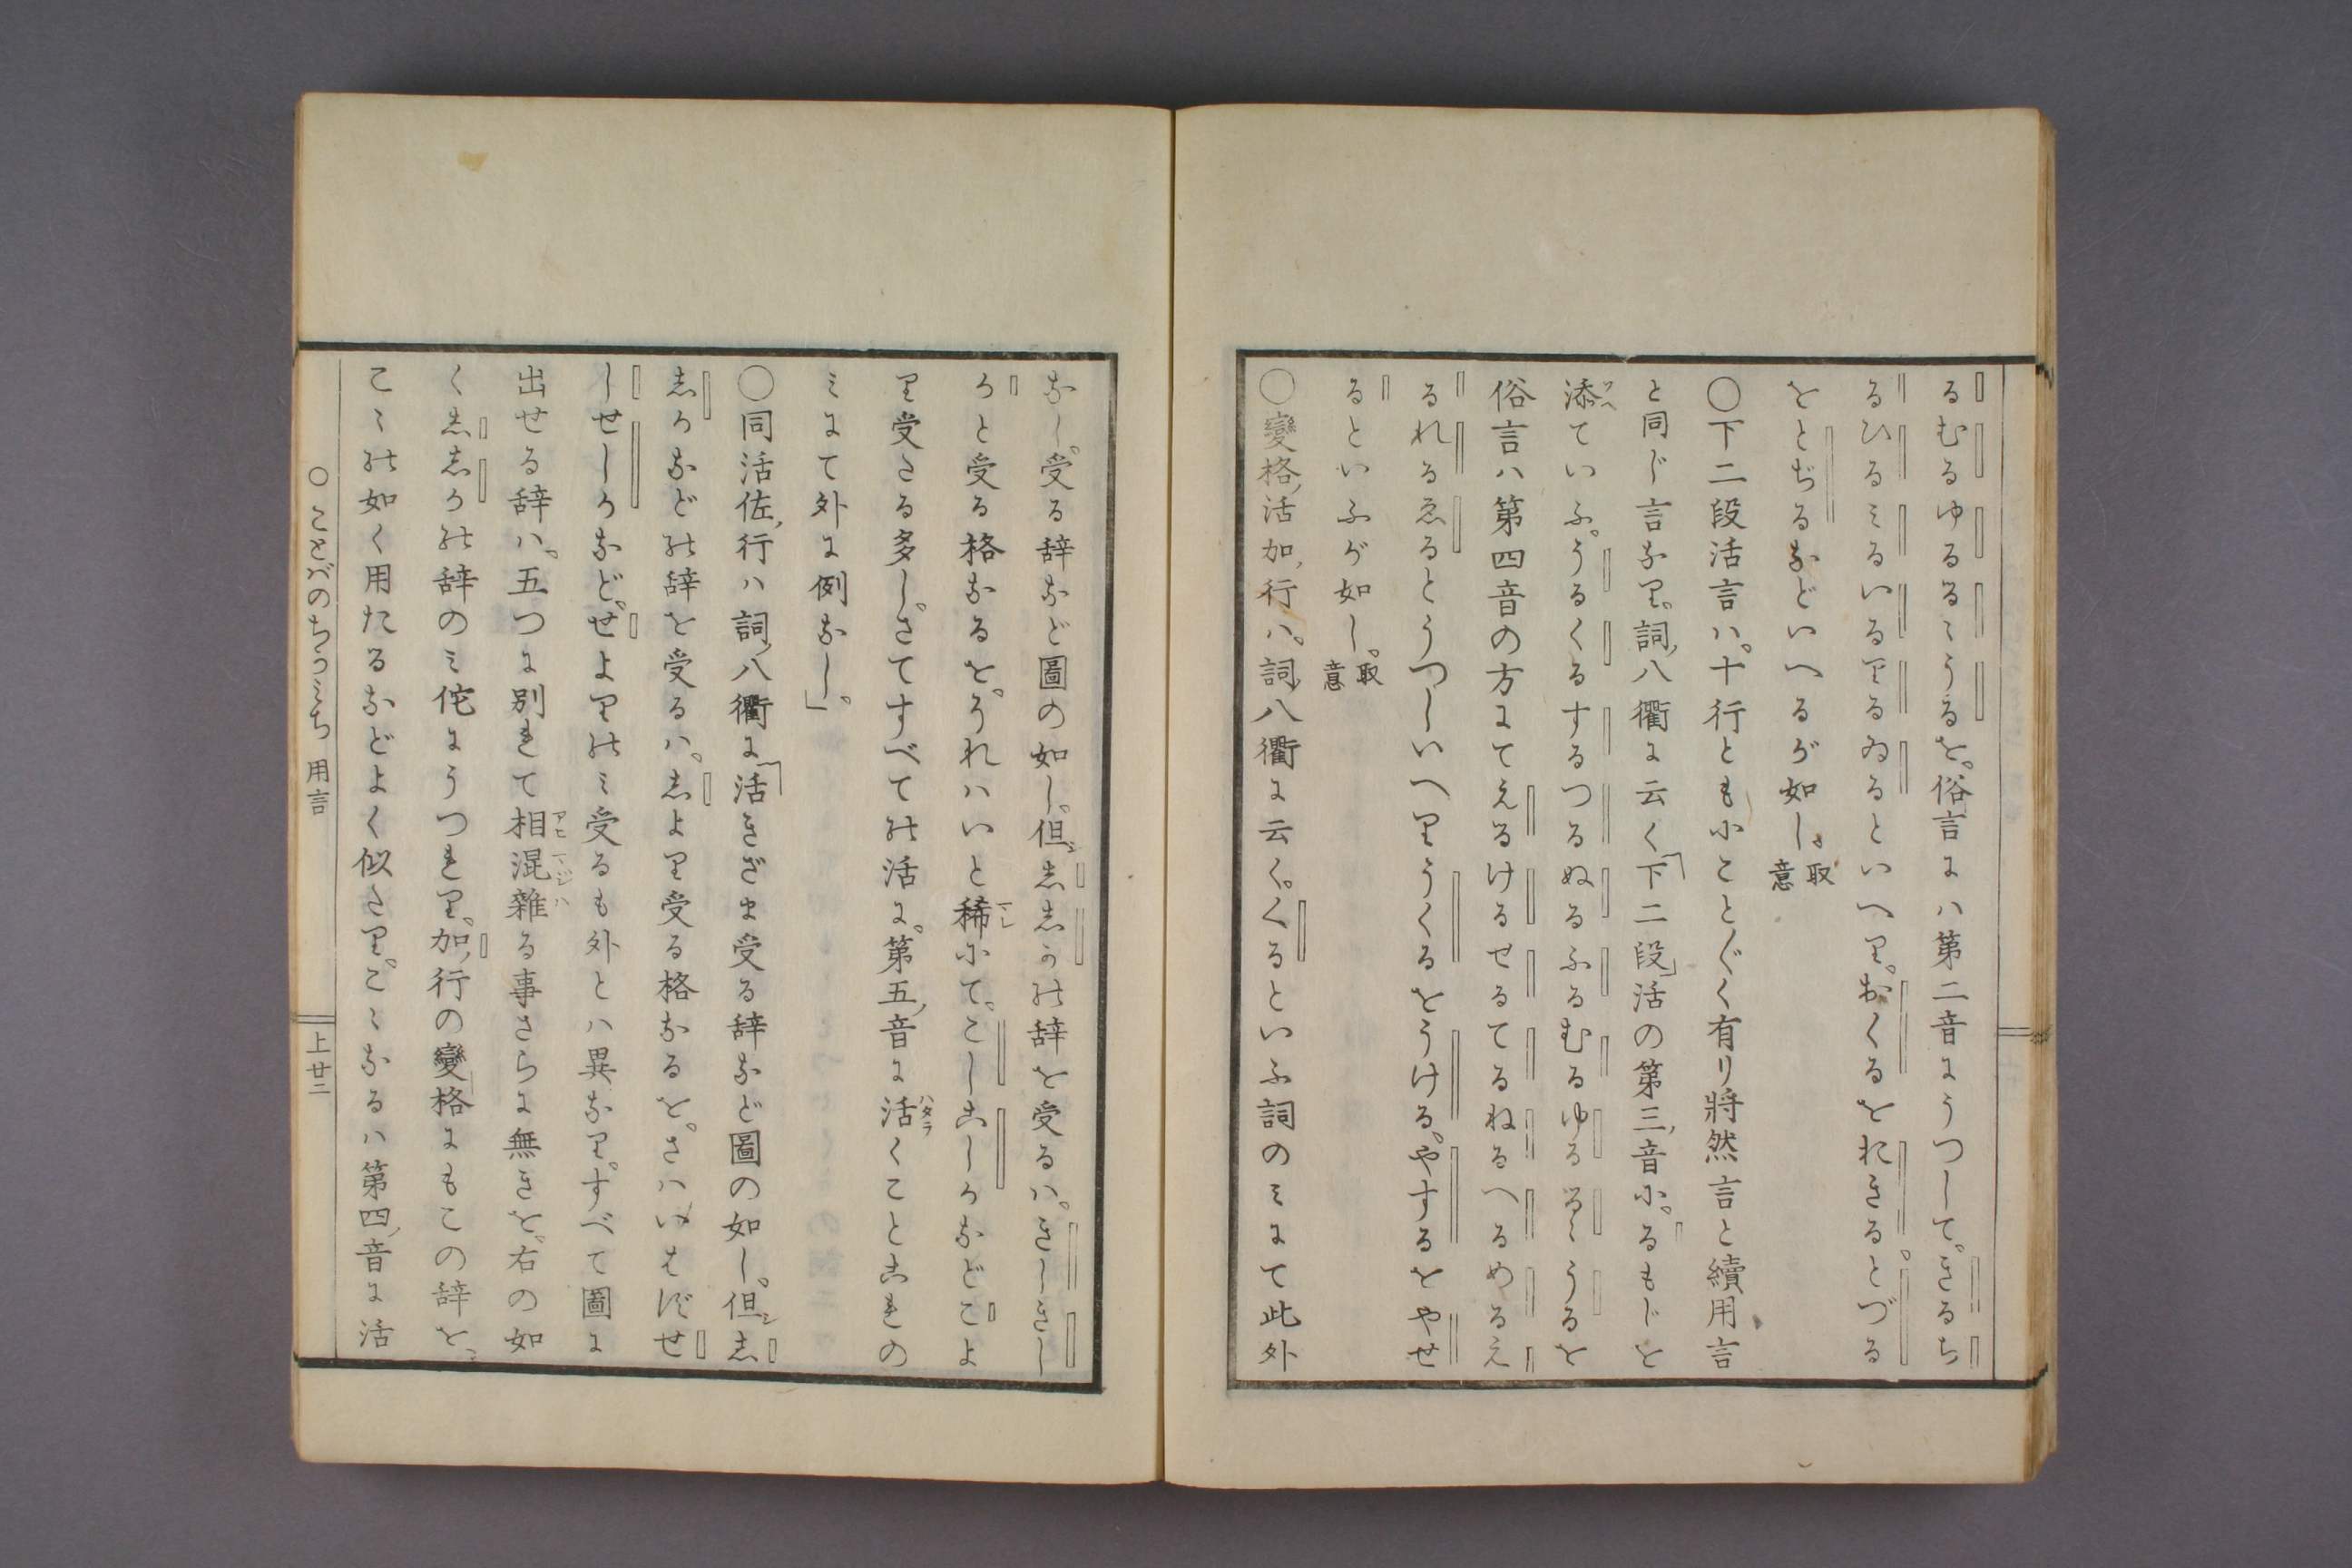 るむるゆるるゝうるを。俗言にハ第二音にうつして。きるち
るひるミるいるりるゐるといへり。おくるをおきると。とづる
をとぢるなどいへるが如し。取意
〇下二段活言ハ。十行とも小ことごとく有り將然言と續用言
と同じ言なり。詞八衢に云く「下二段」活の第三音小。るもじを
添ていふ。うるくるするつるぬるふるむるゆるるゝうるを
俗言ハ第四音の方にてえるけるせるてるねるへるめるえ
るれるゑるとうつしいへりうくるをうける。やするをやせ
るといふが如し。取意
〇變格活加行ハ。詞八衢に云く。くるといふ詞のミにて此外
なし。受る辞など圖の如し。但し志志かの辞を受るハ。きしきし
かと受る格なるを。うれハいと稀小て。こしこしかなどこよ
り受たる多し。さてすべての活に。第五音に活くことこれの
ミにて外に例なし。」
〇同活佐行ハ詞八衢に「活きざま受る辞など圖の如し。但し志
志かなどの辞を受るハ。志より受る格なるを。さハいはずせ
しせしかなど。せよりのミ受るも外とハ異なり。すべて圖に
出せる辞ハ。五つに別れて相混雜る事さらに無きを。右の如
く志志かの辞のミ佗にうつれり。加行の變格にもこの辞を。
こゝの如く用たるなどよく似たり。こゝなるハ第四音に活
〇ことばのちかミち 用言
上廿二